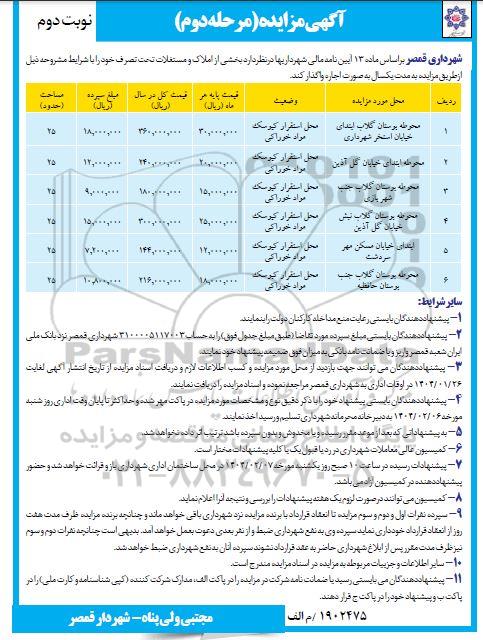 آگهی مزایده (مرحله دوم)
نوبت دوم
شهرداری قمصر براساس ماده ۱۳ آیین نامه مالی شهرداریها درنظردارد بخشی از املاک و مستغلات تحت تصرف خود را با شرایط مشروحه ذیل
ازطریق مزایده به مدت یکسال به صورت اجاره واگذار کند.
ردیف محل مورد مزایده وضعیت قیمت پایه هر ماه (ریال) قیمت کل در سال (ریال) مبلغ سپرده (ریال) مساحت (حدود)
۱ محوطه بوستان گلاب ابتدای خیابان استخر شهرداری محل استقرار کیوسک مواد خوراکی ۳۰,۰۰۰,۰۰۰ ۳۶۰,۰۰۰,۰۰۰ ۱۸,۰۰۰,۰۰۰ ۲۵
۲ محوطه ابتدای خیابان گل آذین محل استقرار کیوسک مواد خوراکی ۲۰,۰۰۰,۰۰۰ ۲۴۰,۰۰۰,۰۰۰ ۱۲,۰۰۰,۰۰۰ ۲۵
۳ محوطه بوستان گلاب جنب شهربازی محل استقرار کیوسک مواد خوراکی ۱۵,۰۰۰,۰۰۰ ۱۸۰,۰۰۰,۰۰۰ ۹,۰۰۰,۰۰۰ ۲۵
۴ محوطه بوستان گلاب نبش خیابان گل آذین محل استقرار کیوسک مواد خوراکی ۲۵,۰۰۰,۰۰۰ ۳۰۰,۰۰۰,۰۰۰ ۱۵,۰۰۰,۰۰۰ ۲۵
۵ ابتدای خیابان مسکن مهر سردشت محل استقرار کیوسک مواد خوراکی ۱۲,۰۰۰,۰۰۰ ۱۴۴,۰۰۰,۰۰۰ ۷,۲۰۰,۰۰۰ ۲۵
۶ محوطه بوستان گلاب جنب بوستان حافظیه محل استقرار کیوسک مواد خوراکی ۱۸,۰۰۰,۰۰۰ ۲۱۶,۰۰۰,۰۰۰ ۱۰,۸۰۰,۰۰۰ ۲۵
سایر شرایط:
۱– پیشنهاددهندگان بایستی رعایت منع مداخله کارکنان دولت را بنمایند.
۲– پیشنهاددهندگان بایستی مبلغ سپرده مورد تقاضا (طبق مبلغ جدول فوق) را به حساب ۳۱۰۰۰۰۵۱۱۷۰۰۳ شهرداری قمصر نزد بانک ملی
ایران شعبه قمصر واریز و یا ضمانت نامه بانکی به میزان فوق ضمیمه پیشنهاد خود نمایند.
۳– پیشنهاددهندگان می توانند جهت بازدید از محل مورد مزایده و کسب اطلاعات لازم و دریافت اسناد مزایده از تاریخ انتشار آگهی لغایت
۱۴۰۴/۰۱/۲۶ در اوقات اداری به شهرداری قمصر مراجعه نموده و اسناد مزایده را دریافت نمایند.
۴– پیشنهاددهندگان بایستی پیشنهاد خود را با ذکر دقیق نوع و مشخصات مورد مزایده در پاکت مهر شده و حداکثر تا پایان وقت اداری روز شنبه
مورخه ۱۴۰۴/۰۲/۰۶ به دبیرخانه محرمانه شهرداری تسلیم و رسید اخذ نمایند.
۵– به پیشنهاداتی که بعد از موعد مقرر رسیده و یا مخدوش و بدون سپرده باشد ترتیب اثر داده نخواهد شد.
۶– کمیسیون عالی معاملات شهرداری در رد یا قبول یک یا کلیه پیشنهادات مختار است.
۷– پیشنهادات رسیده در ساعت ۱۰ صبح روز یکشنبه مورخه ۱۴۰۴/۰۲/۰۷ در محل ساختمان اداری شهرداری باز و قرائت خواهد شد و حضور
پیشنهاددهنده در کمیسیون آزاد می باشد.
۸– کمیسیون می توانند در صورت لزوم یک هفته پیشنهادات را بررسی و نتیجه آنرا اعلام نماید.
۹– سپرده نفرات اول و دوم و سوم مزایده تا انعقاد قرارداد با برنده مزایده نزد شهرداری باقی خواهد ماند و چنانچه برنده مزایده ظرف مدت هفت
روز از انعقاد قرارداد خودداری نماید سپرده وی به نفع شهرداری ضبط و از نفر بعدی دعوت بعمل خواهد آمد. بدیهی است چنانچه نفرات دوم و سوم
نیز ظرف مدت مقرر پس از ابلاغ شهرداری حاضر به عقد قرارداد نشوند سپرده آنان به نفع شهرداری ضبط خواهد شد.
۱۰– سایر اطلاعات و جزییات مربوطه به مزایده در اسناد مزایده مندرج است.
۱۱– پیشنهاددهندگان می بایستی رسید یا ضمانت نامه شرکت در مزایده را در پاکت الف، مدارک شرکت کننده (کپی شناسنامه و کارت ملی) را در
پاکت ب و پیشنهاد خود را در پاکت ج قرار دهند.
۱۹۰۲۴۷۵ /م الف
مجتبی ولی پناه– شهردار قمصر